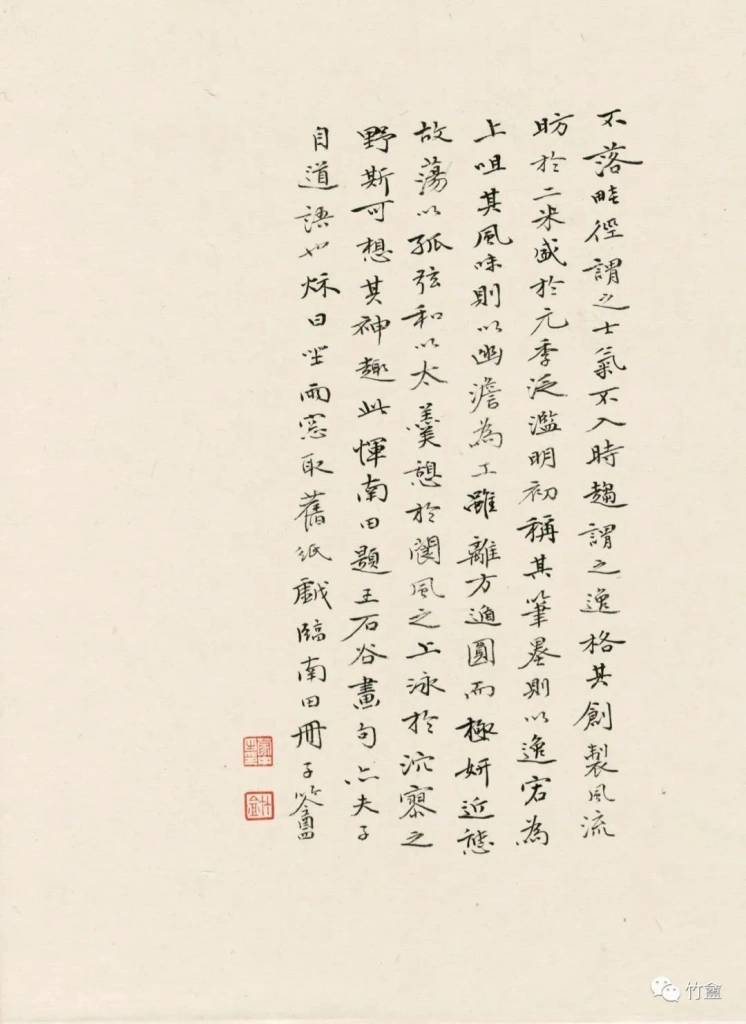 不落畦徑謂之士氣不入時趨謂之逸格其創製風流
昉於二米盛於元季泛濫明初稱其筆墨則以逸宕為
上咀其風味則以幽澹為工雖離方遁圓而極妍近態
故蕩以孤弦和以太羹憩於閬風之上泳於泬寥之
野斯可想其神趣此惲南田題王石谷畫句亦夫子
自道語也秌日坐雨窓取舊紙戲臨南田冊子竹盦
竹盦
竹盦